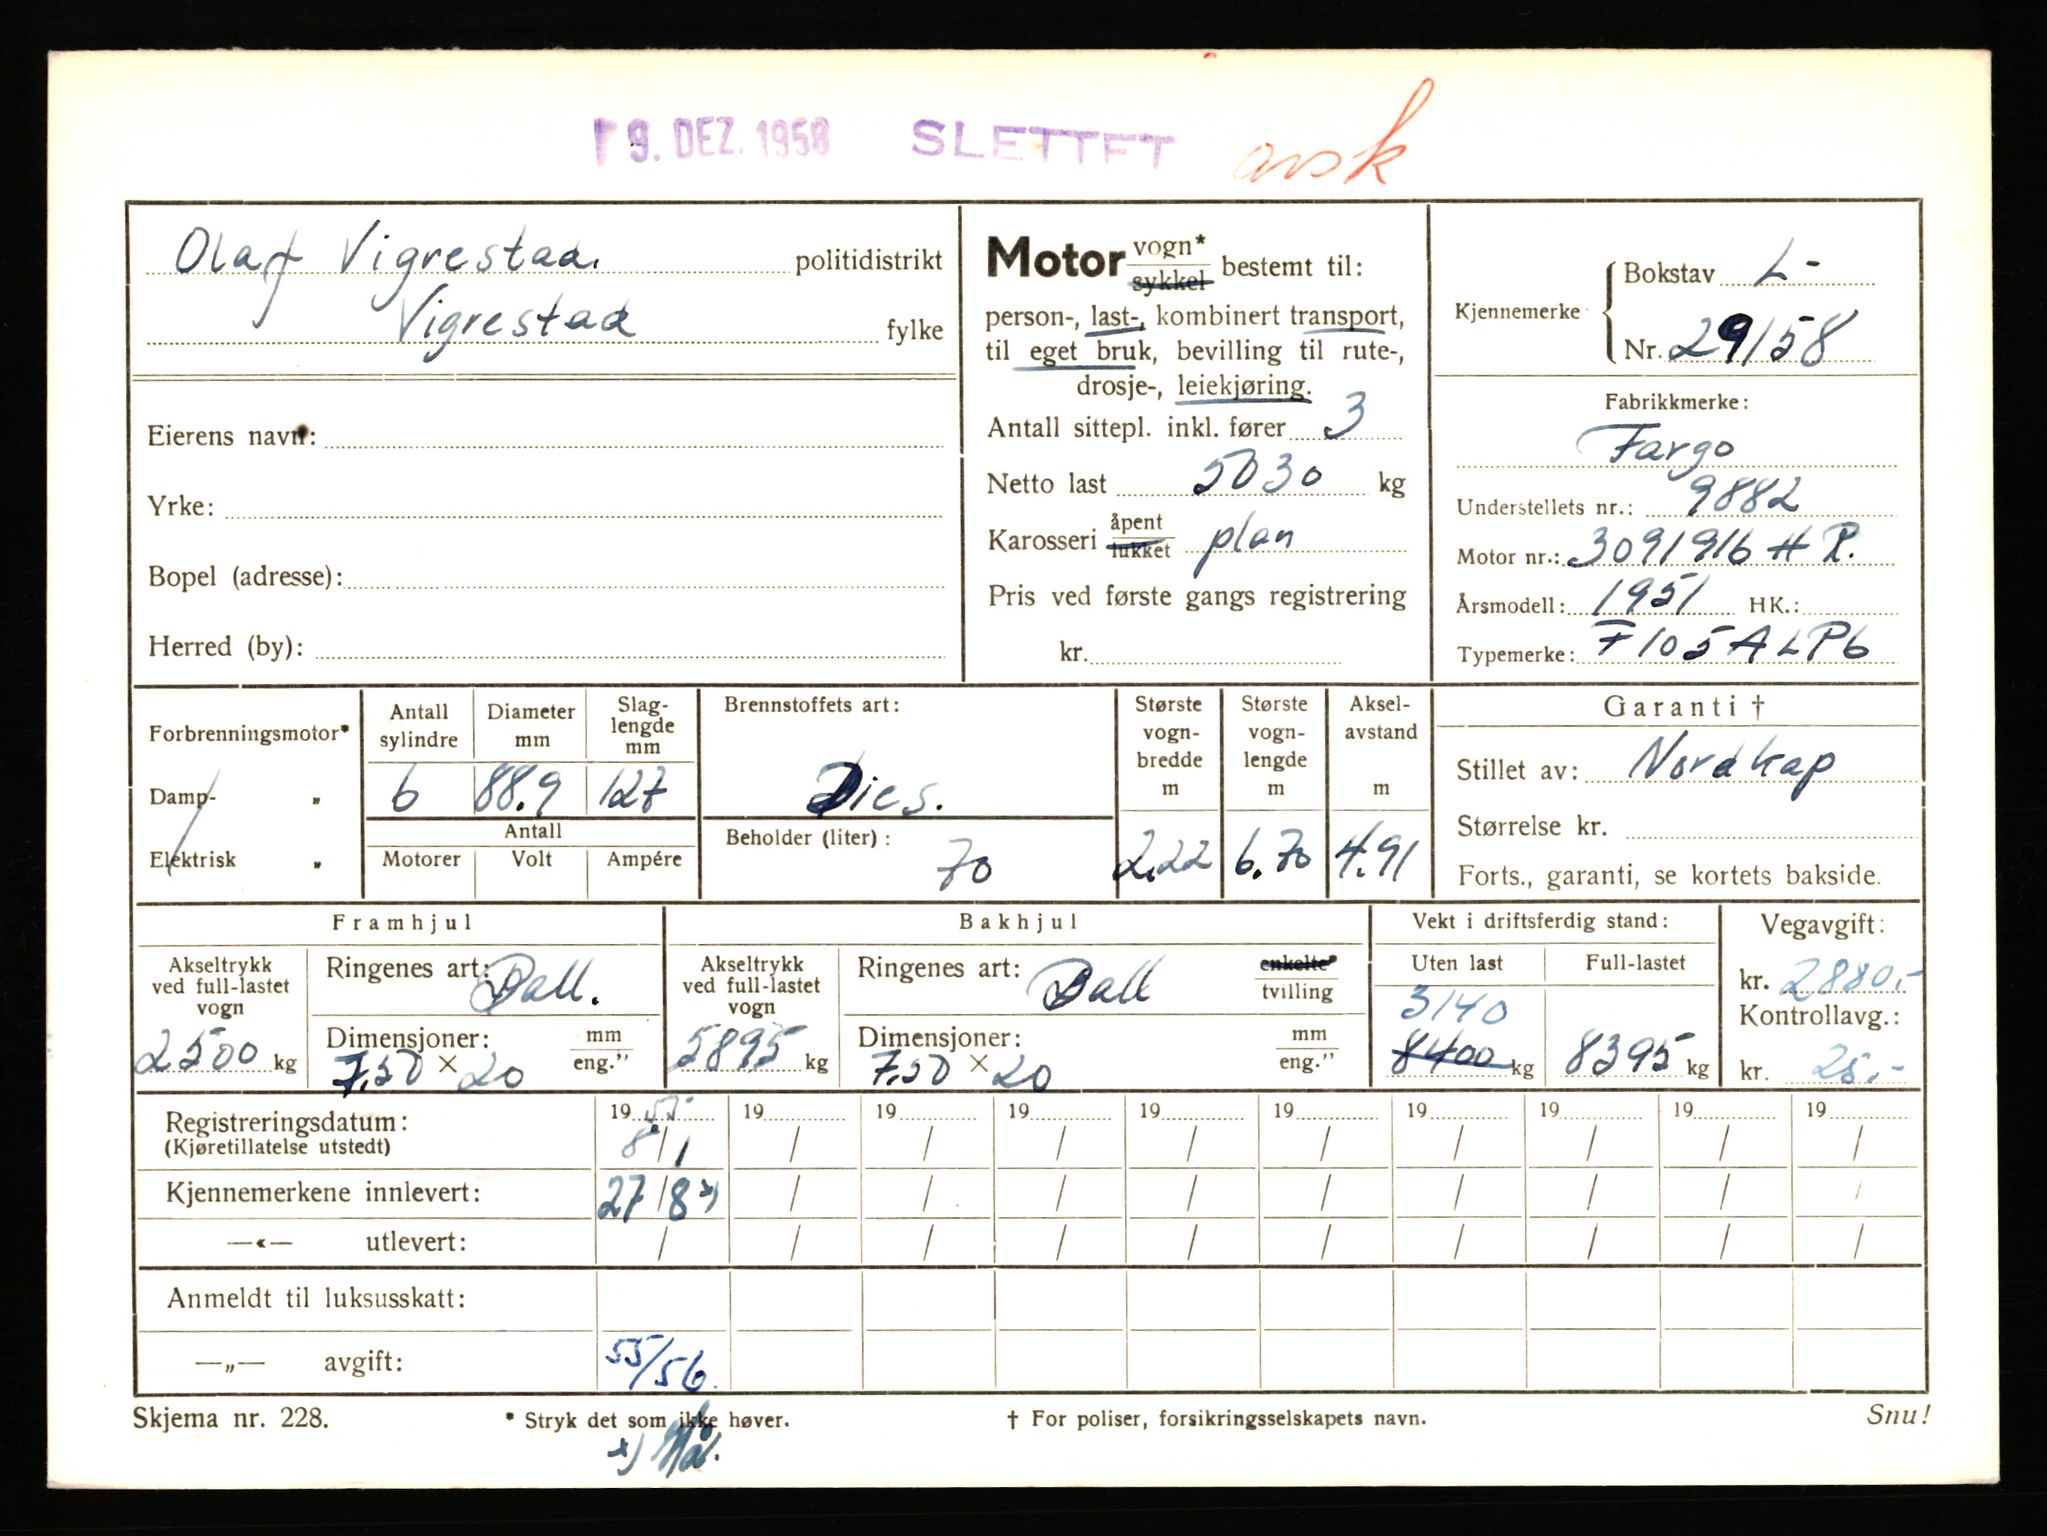 19. DEZ. 1958 SLETTET avsk
Olaf Vigrestad. politidistrikt
Vigrestad fylke
Eierens navn:
Yrke:
Bopel (adresse):
Herred (by):
Motor vogn* sykkel bestemt til:
person-, last-, kombinert transport,
til eget bruk, bevilling til rute-,
drosje-, leiekjøring.
Antall sittepl. inkl. fører 3
Netto last 5030 kg
Karosseri åpent lukket plan
Pris ved første gangs registrering
kr.
Kjennemerke Bokstav L-
Nr. 29158
Fabrikkmerke:
Fargo
Understellets nr.: 9882
Motor nr.: 3091916 H R.
Årsmodell: 1951 HK.:
Typemerke: F105ALP6
Forbrenningsmotor*
Damp- „
Elektrisk „
Antall sylindre Diameter mm Slaglengde mm
6 88.9 127
Antall
Motorer Volt Ampére
Brennstoffets art:
Dies.
Beholder (liter): 70
Største vognbredde m Største vognlengde m Akselavstand m
2.22 6.70 4.91
Garanti †
Stillet av: Nordkap
Størrelse kr.
Forts., garanti, se kortets bakside.
Framhjul
Akseltrykk ved full-lastet vogn
2500 kg
Ringenes art: Ball.
Dimensjoner: mm eng."
7.50 × 20
Bakhjul
Akseltrykk ved full-lastet vogn
5895 kg
Ringenes art: Ball enkelte* tvilling
Dimensjoner: mm eng."
7.50 × 20
Vekt i driftsferdig stand:
Uten last Full-lastet
3140
8400 kg 8395 kg
Vegavgift:
kr. 2880.-
Kontrollavg.:
kr. 25.-
Registreringsdatum: 19 55 19 19 19 19 19 19 19 19 19
(Kjøretillatelse utstedt) 8/1 / / / / / / / / /
Kjennemerkene innlevert: 27/8 *) / / / / / / / / /
—«— utlevert: / / / / / / / / / /
Anmeldt til luksusskatt:
—„— avgift: 55/56.
Skjema nr. 228. * Stryk det som ikke høver. † For poliser, forsikringsselskapets navn. Snu!